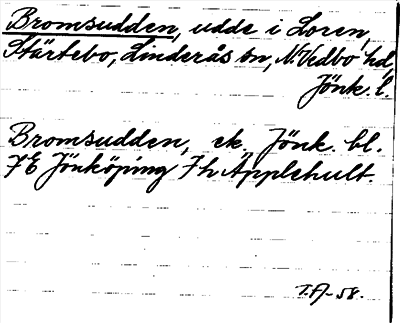 Bromsudden, udde i Loren,
Stärtebo, Linderås sn, N. Vedbo hd,
Jönk. l.
Bromsudden, ek. Jönk. bl.
7E Jönköping 7h Äpplehult.
T.A-58.